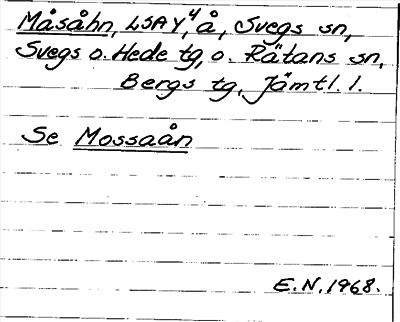 Måsåhn, LSAY⁴, å, Svegs sn,
Svegs o. Hede tg, o. Rätans sn,
Bergs tg, Jämtl. l.
Se Mossaån
E.N. 1968.